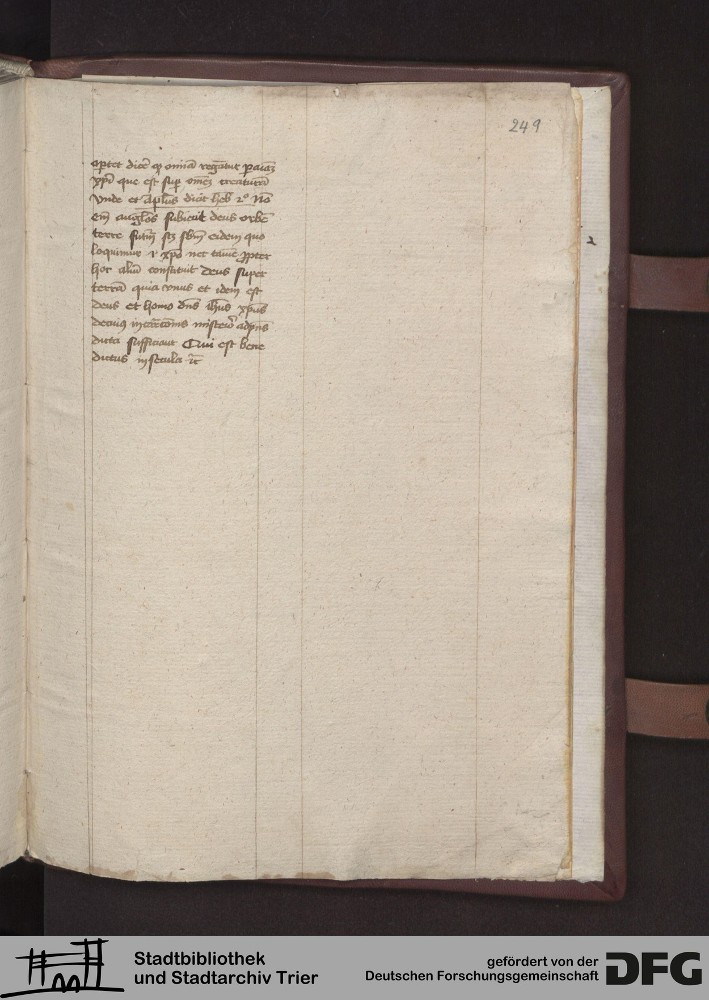 249
oportet dicere q omnia regantur per aiaz
xpi que est sup omnez creaturā
vnde et aplus dicit heb 2º Nō
em angl̄os subiecit deus orbē
terre futm̄ scz scdm̄ eidem quo
loquimur i xpo nec tamē propter
hoc aliū constituit deus super
terrā quia vnus et idem est
deus et homo dn̄s ih̄us xpus
de cuius incarnacōnis misterio ad p̄ns
dicta sufficiant Cui est bene
dictus in secula r̄c
2
Stadtbibliothek
und Stadtarchiv Trier
gefördert von der
Deutschen Forschungsgemeinschaft
DFG